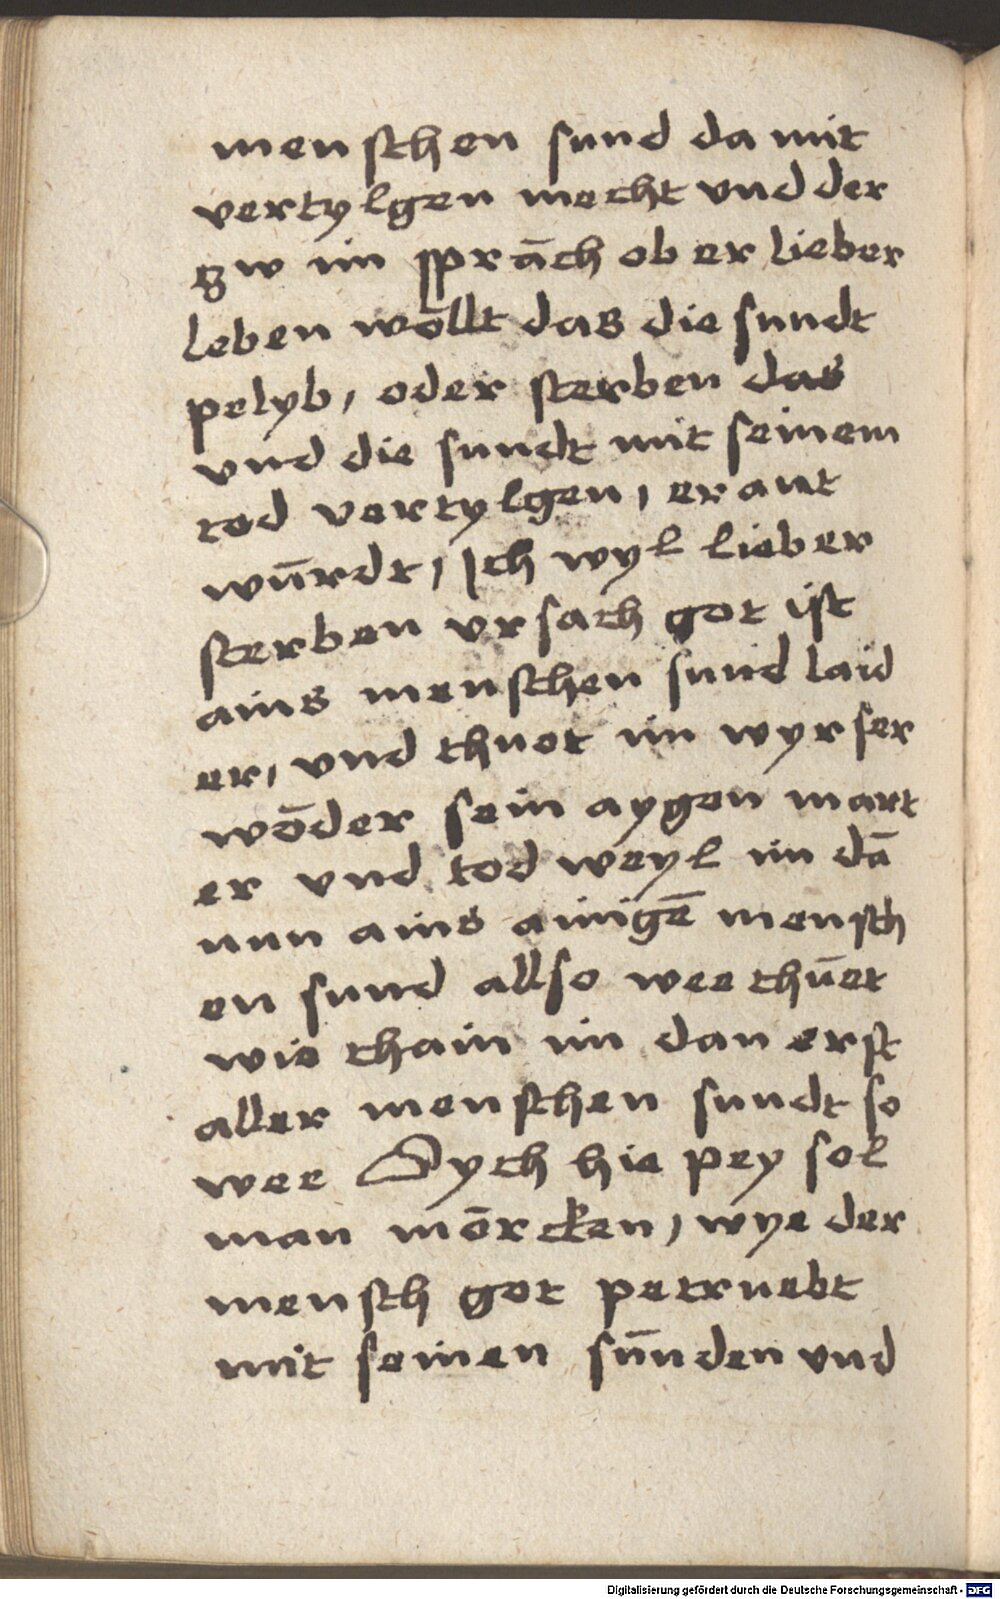 menschen sund da mit
vertylgen mecht vnd der
zw im sprāch ob er lieber
leben wōllt das die sundt
pelyb, oder sterben das
vnd die sundt mit seinem
tod vertylgen, er ant
wūrdt, Ich wyl lieber
sterben vrsach got ist
ains menschen sund laid
er, vnd thuot im wyrser
wōder sein aygen mart
er vnd tod weyl im dā
nun ains ainigē mensch
en sund allso wee thūet
wie thain im dan erst
aller menschen sundt so
wee Sych hie pey sol
man mōrcken, wye der
mensch got petruebt
mit seinen sūnden vnd
Digitalisierung gefördert durch die Deutsche Forschungsgemeinschaft - DFG